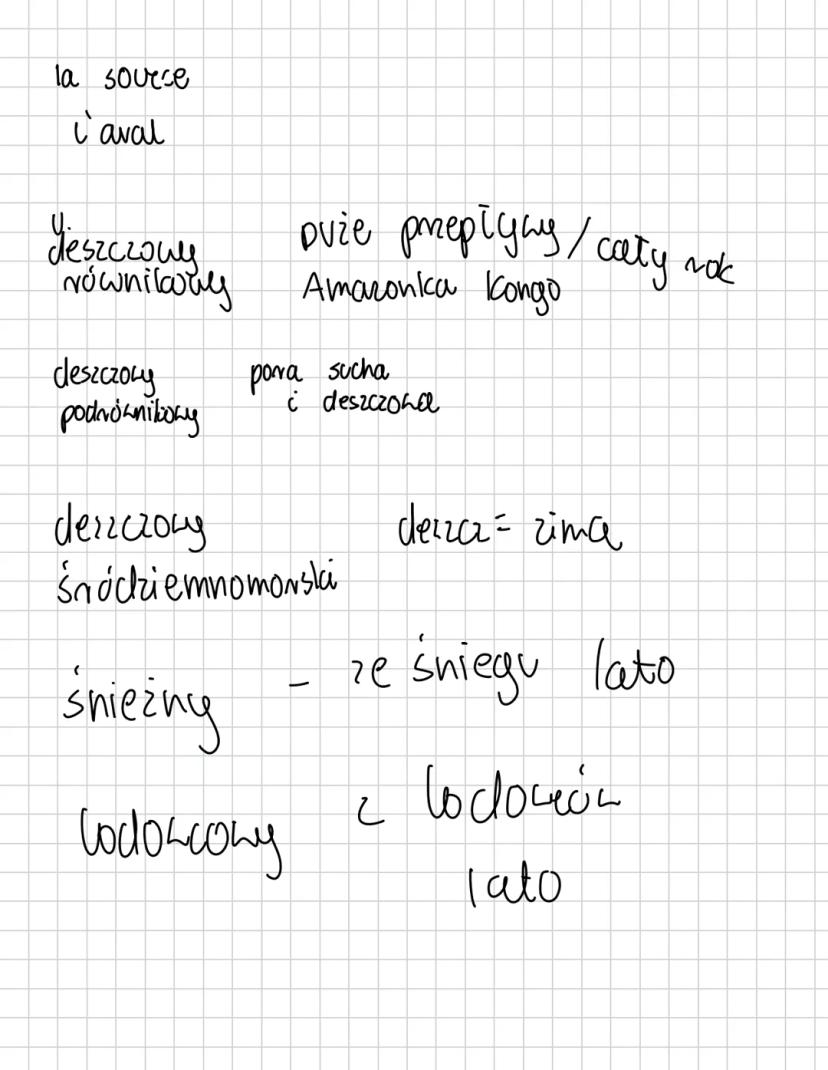 la source
l'aval
deszczowy Duże przepływy / cały rok
równikowy Amazonka Kongo
deszczowy pora sucha
podrównikowy i deszczowa
deszczowy deszcz = zima
śródziemnomorski
śnieżny - ze śniegu lato
lodowcowy z lodowców
lato